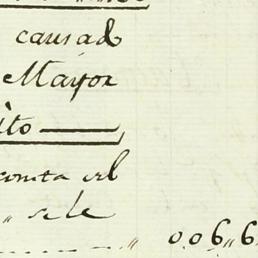 causad
Mayor
ito
conta el
" de le
" 006" 6